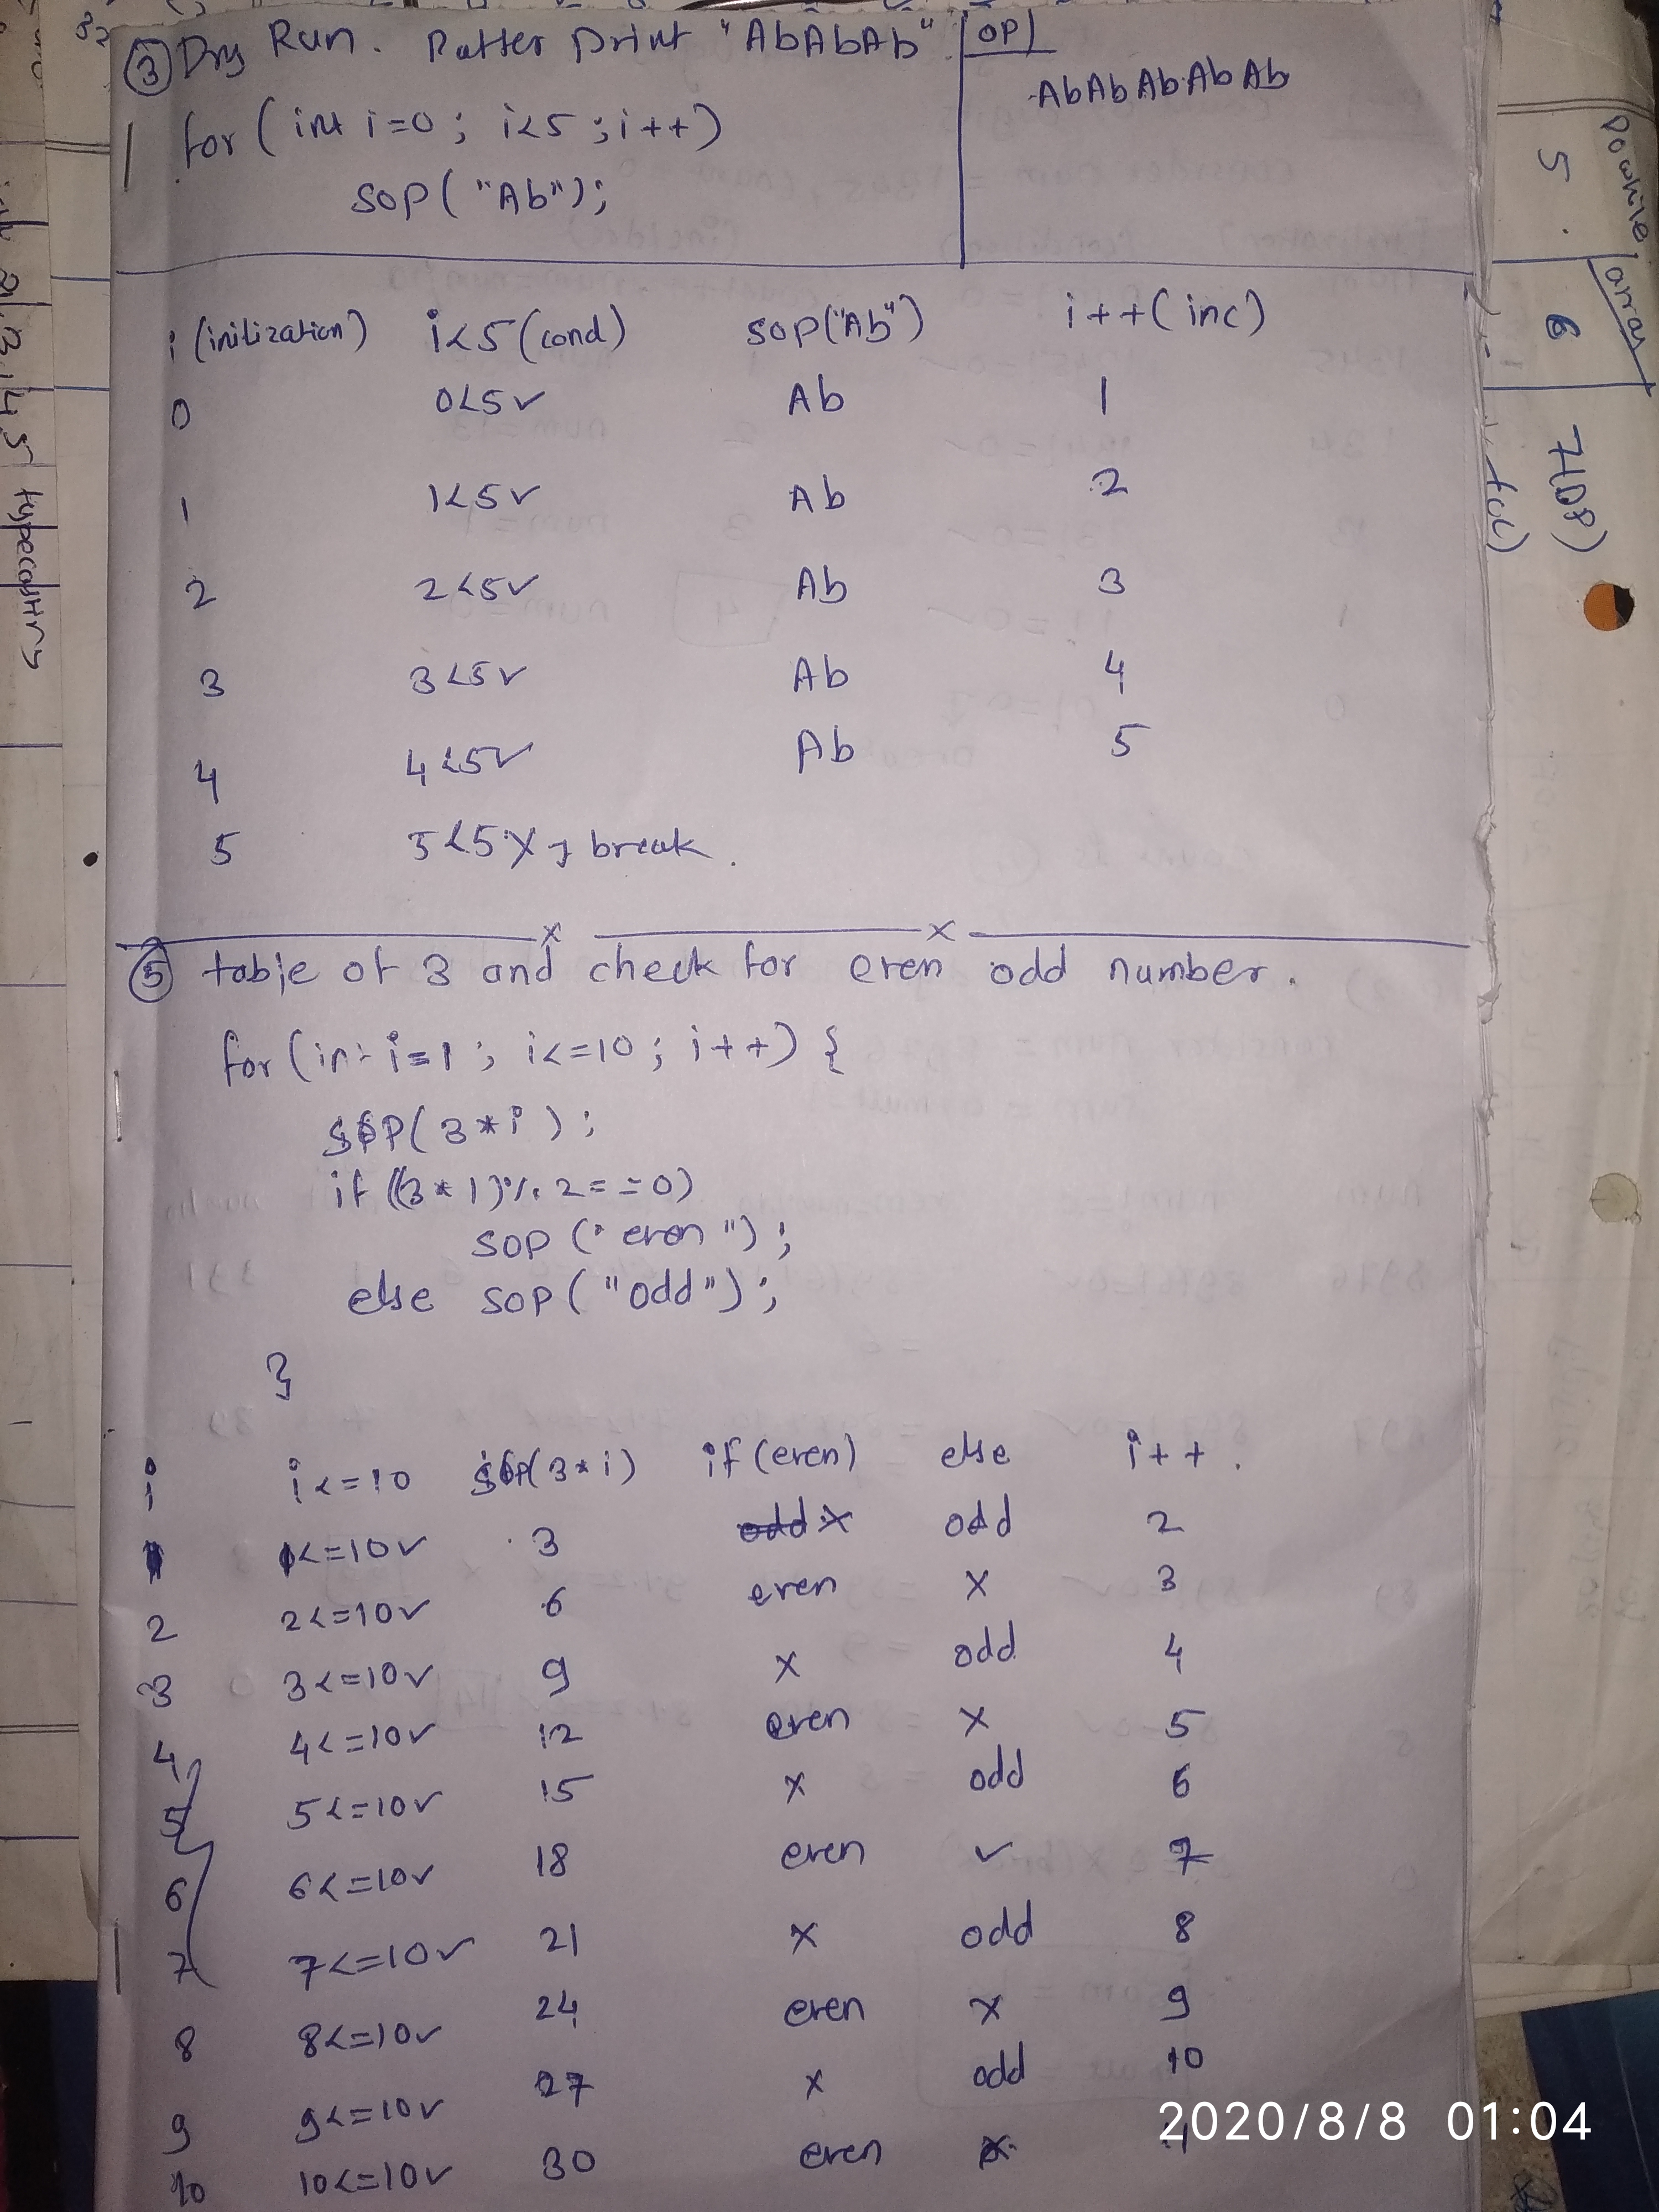 ③ Dry Run. Patter print "AbAbAb"
OP
AbAbAbAbAb
for (int i=0; i<5; i++)
SOP("Ab");
i (inilization) i<5 (cond) SOP("Ab") i++ (inc)
0 0<5 ✓ Ab 1
1 1<5 ✓ Ab 2
2 2<5 ✓ Ab 3
3 3<5 ✓ Ab 4
4 4<5 ✓ Ab 5
5 5<5 X → break.
⑤ table of 3 and check for even odd number.
for (int i=1; i<=10; i++) {
SOP(3*i);
if ((3*1)%2==0)
SOP("even");
else SOP("odd");
}
i i<=10 SOP(3*i) if (even) else i++.
1 1<=10 ✓ 3 odd X odd 2
2 2<=10 ✓ 6 even X 3
3 3<=10 ✓ 9 X odd 4
4 4<=10 ✓ 12 even X 5
5 5<=10 ✓ 15 X odd 6
6 6<=10 ✓ 18 even ✓ 7
7 7<=10 ✓ 21 X odd 8
8 8<=10 ✓ 24 even X 9
9 9<=10 ✓ 27 X odd 10
10 10<=10 ✓ 30 even X 11
Dowhile array
5. 6 7(08)
2020/8/8 01:04